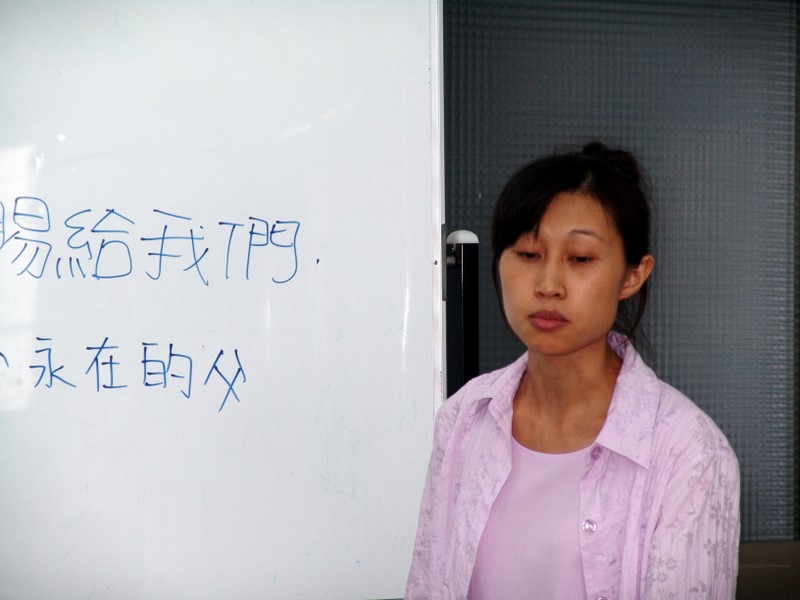 賜給我們.
永在的父